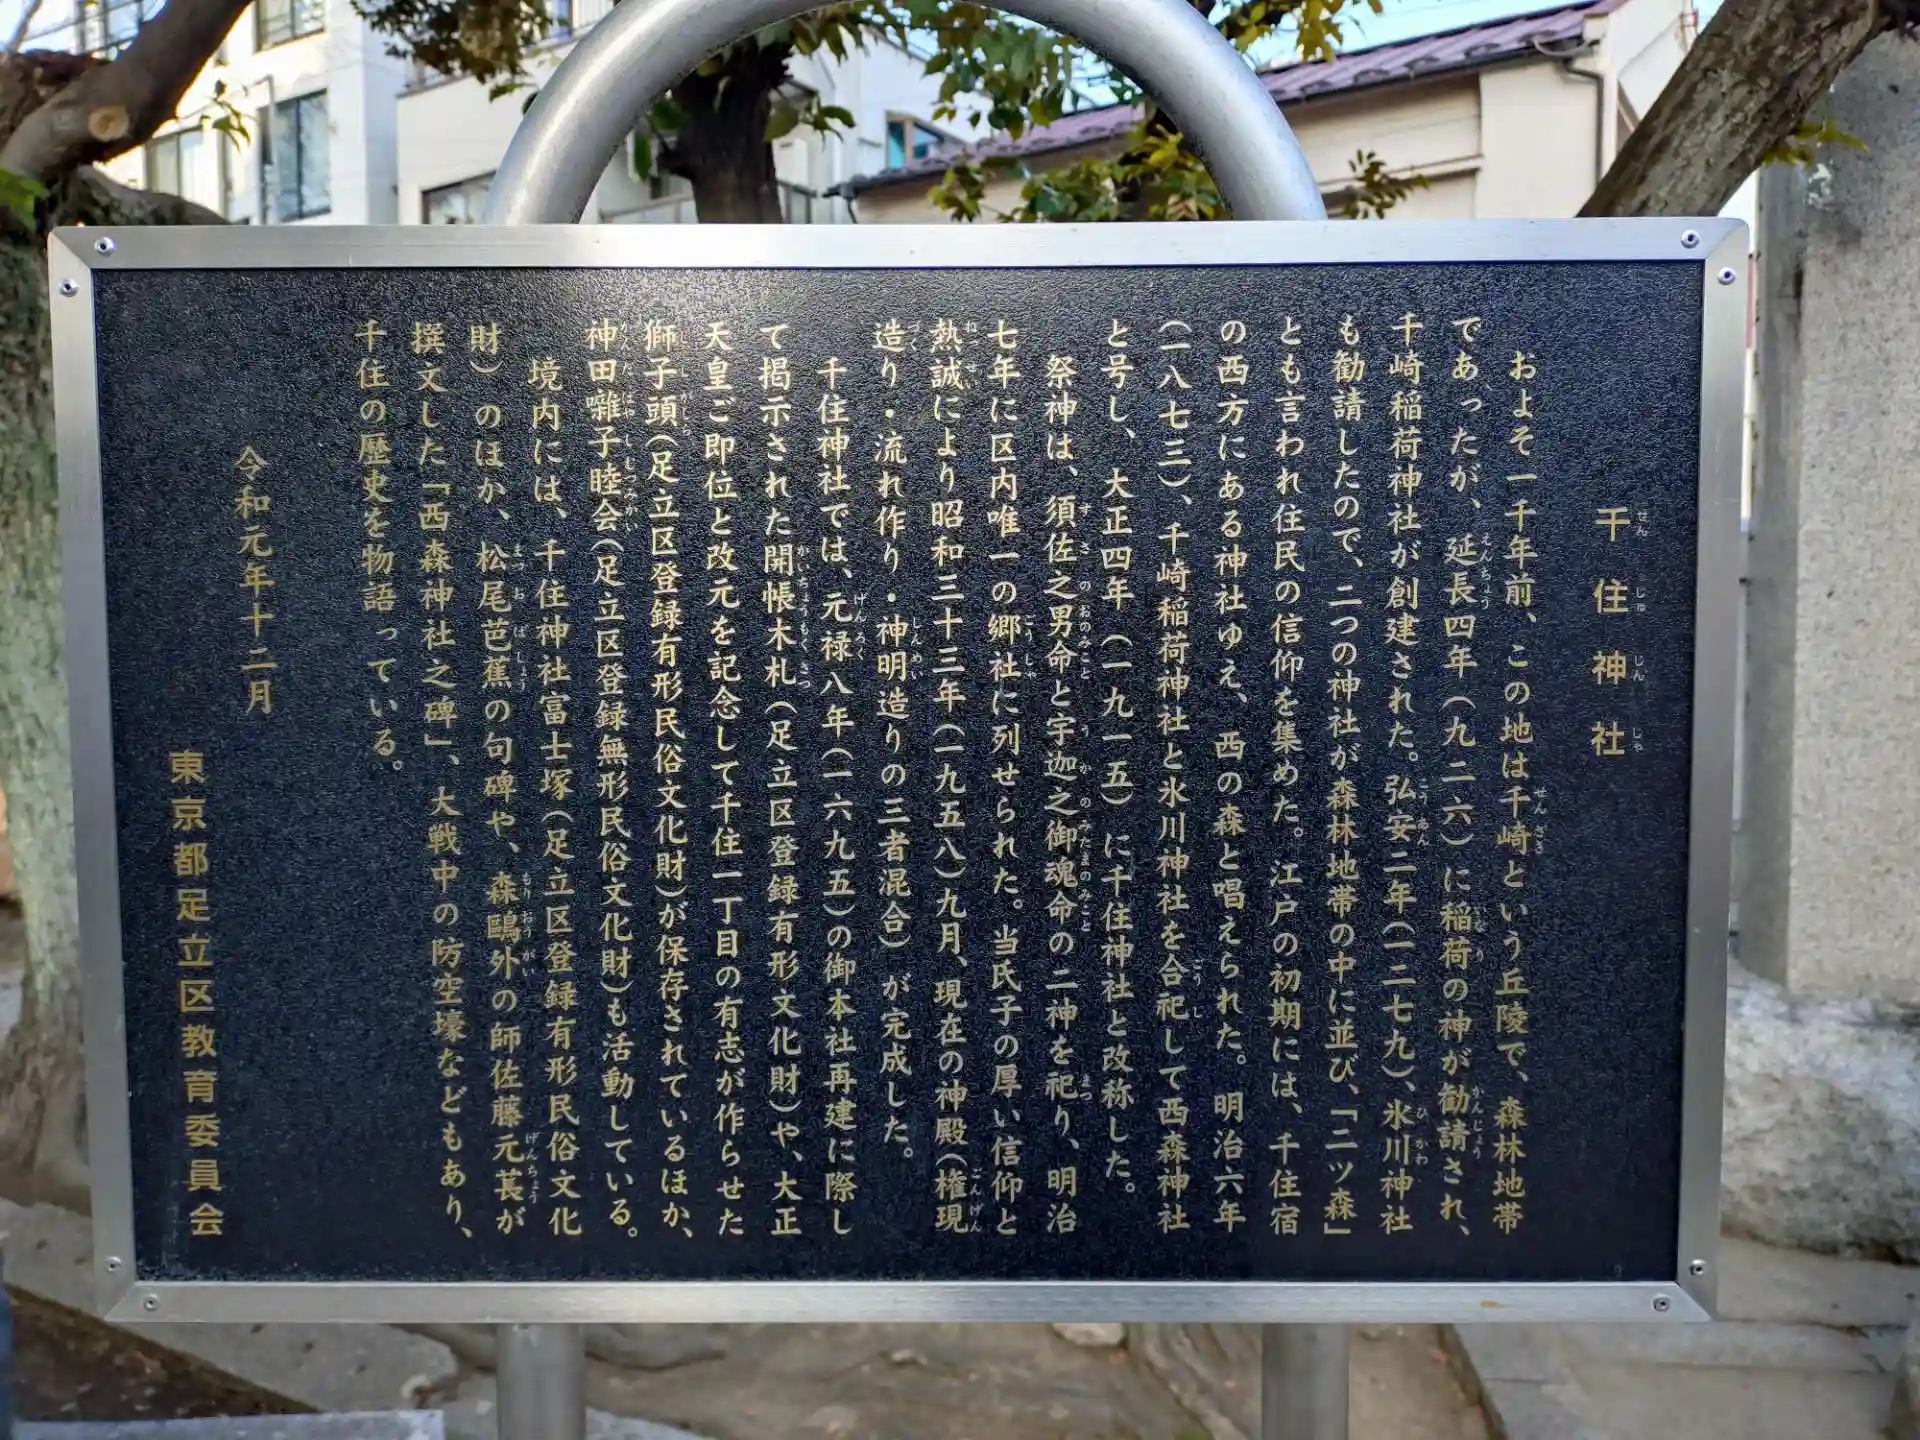 千住神社
およそ一千年前、この地は千崎という丘陵で、森林地帯
であったが、延長四年（九二六）に稲荷の神が勧請され、
千崎稲荷神社が創建された。弘安二年（一二七九）、氷川神社
も勧請したので、二つの神社が森林地帯の中に並び、「二ツ森」
とも言われ住民の信仰を集めた。江戸の初期には、千住宿
の西方にある神社ゆえ、西の森と唱えられた。明治六年
（一八七三）、千崎稲荷神社と氷川神社を合祀して西森神社
と号し、大正四年（一九一五）に千住神社と改称した。
祭神は、須佐之男命と宇迦之御魂命の二神を祀り、明治
七年に区内唯一の郷社に列せられた。当氏子の厚い信仰と
熱誠により昭和三十三年（一九五八）九月、現在の神殿（権現
造り・流れ作り・神明造りの三者混合）が完成した。
千住神社では、元禄八年（一六九五）の御本社再建に際し
て掲示された開帳木札（足立区登録有形文化財）や、大正
天皇ご即位と改元を記念して千住一丁目の有志が作らせた
獅子頭（足立区登録有形民俗文化財）が保存されているほか、
神田囃子睦会（足立区登録無形民俗文化財）も活動している。
境内には、千住神社富士塚（足立区登録有形民俗文化
財）のほか、松尾芭蕉の句碑や、森鷗外の師佐藤元萇が
撰文した「西森神社之碑」、大戦中の防空壕などもあり、
千住の歴史を物語っている。
令和元年十二月
東京都足立区教育委員会